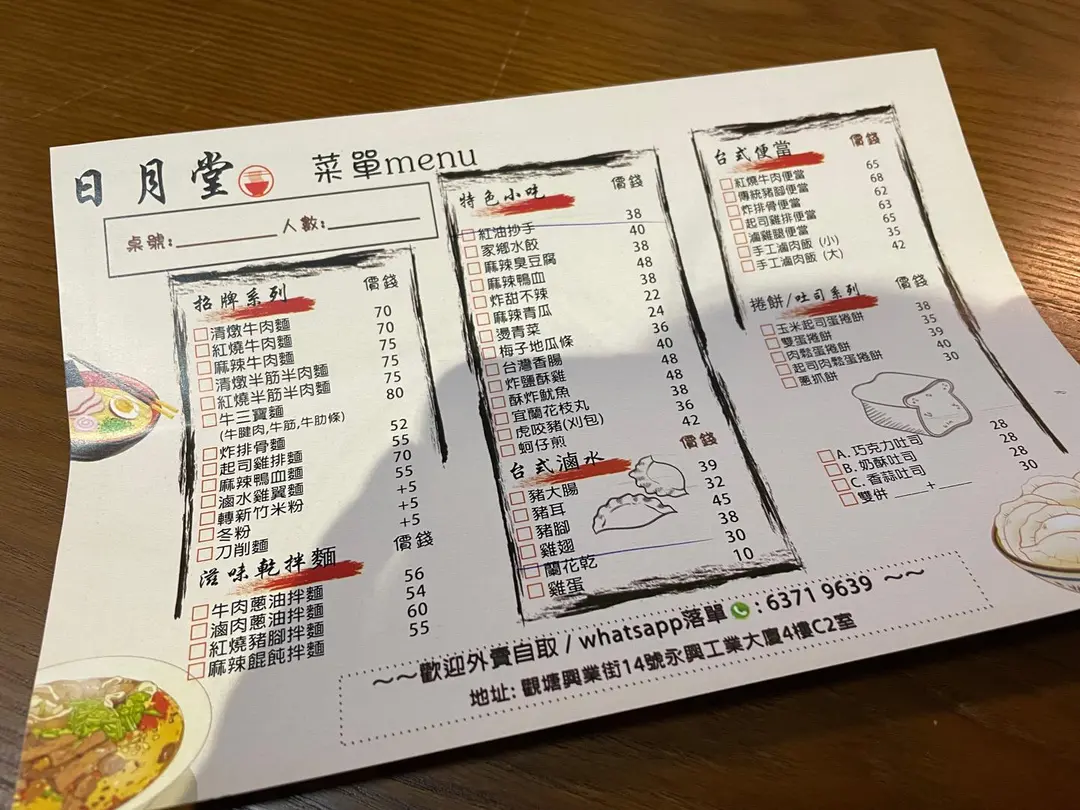 日月堂 菜單menu
桌號:________ 人數:________
招牌系列 價錢
清燉牛肉麵 70
紅燒牛肉麵 70
麻辣牛肉麵 75
清燉半筋半肉麵 75
紅燒半筋半肉麵 75
牛三寶麵 80
(牛腱肉,牛筋,牛肋條)
炸排骨麵 52
起司雞排麵 55
麻辣鴨血麵 70
滷水雞翼麵 55
轉新竹米粉 +5
冬粉 +5
刀削麵 +5
滋味乾拌麵 價錢
牛肉蔥油拌麵 56
滷肉蔥油拌麵 54
紅燒豬腳拌麵 60
麻辣餛飩拌麵 55
特色小吃 價錢
紅油抄手 38
家鄉水餃 40
麻辣臭豆腐 38
麻辣鴨血 48
炸甜不辣 38
麻辣青瓜 22
燙青菜 24
梅子地瓜條 36
台灣香腸 40
炸鹽酥雞 48
酥炸魷魚 48
宜蘭花枝丸 38
虎咬豬(刈包) 36
蚵仔煎 42
台式滷水 價錢
豬大腸 39
豬耳 32
豬腳 45
雞翅 38
蘭花乾 30
雞蛋 10
台式便當 價錢
紅燒牛肉便當 65
傳統豬腳便當 68
炸排骨便當 62
起司雞排便當 63
滷雞腿便當 65
手工滷肉飯 (小) 35
手工滷肉飯 (大) 42
捲餅/吐司系列 價錢
玉米起司蛋捲餅 38
雙蛋捲餅 35
肉鬆蛋捲餅 39
起司肉鬆蛋捲餅 40
蔥抓餅 30
A. 巧克力吐司 28
B. 奶酥吐司 28
C. 香蒜吐司 28
雙併 ____+____ 30
~~歡迎外賣自取 / whatsapp落單 : 6371 9639 ~~
地址: 觀塘興業街14號永興工業大廈4樓C2室